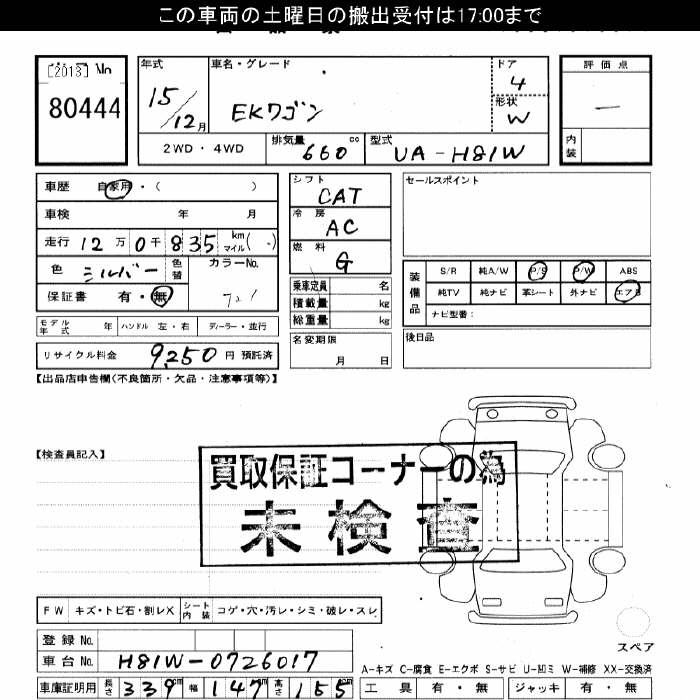 この車両の土曜日の搬出受付は17:00まで
[2013] No
80444
年式
15/12月
車名・グレード
EKワゴン
ドア
4
形状
W
評価点
—
内装
2WD・4WD
排気量
660 cc
型式
UA-H81W
車歴 自家用・( )
車検 年 月
走行 12万0千835 km マイル( )
色 シルバー 色替
カラーNo.
保証書 有・無
モデル年式 年 ハンドル 左・右 ディーラー・並行
リサイクル料金 9,250 円 預託済
シフト
CAT
冷房
AC
燃料
G
乗車定員 名
積載量 kg
総重量 kg
名変期限
月 日
セールスポイント
装備品
S/R 純A/W P/S P/W ABS
純TV 純ナビ 革シート 外ナビ エアB
ナビ型番:
後日品
【出品店申告欄(不良箇所・欠品・注意事項等)】
【検査員記入】
買取保証コーナーの為
未検査
FW キズ・トビ石・割レX シート内装 コゲ・穴・汚レ・シミ・破レ・スレ
登録No.
車台No. H81W-0726017
車庫証明用 長さ 339cm 幅 147cm 高さ 155cm
スペア
A-キズ C-腐食 E-エクボ S-サビ U-凹ミ W-補修 XX-交換済
工具 有・無 ジャッキ 有・無